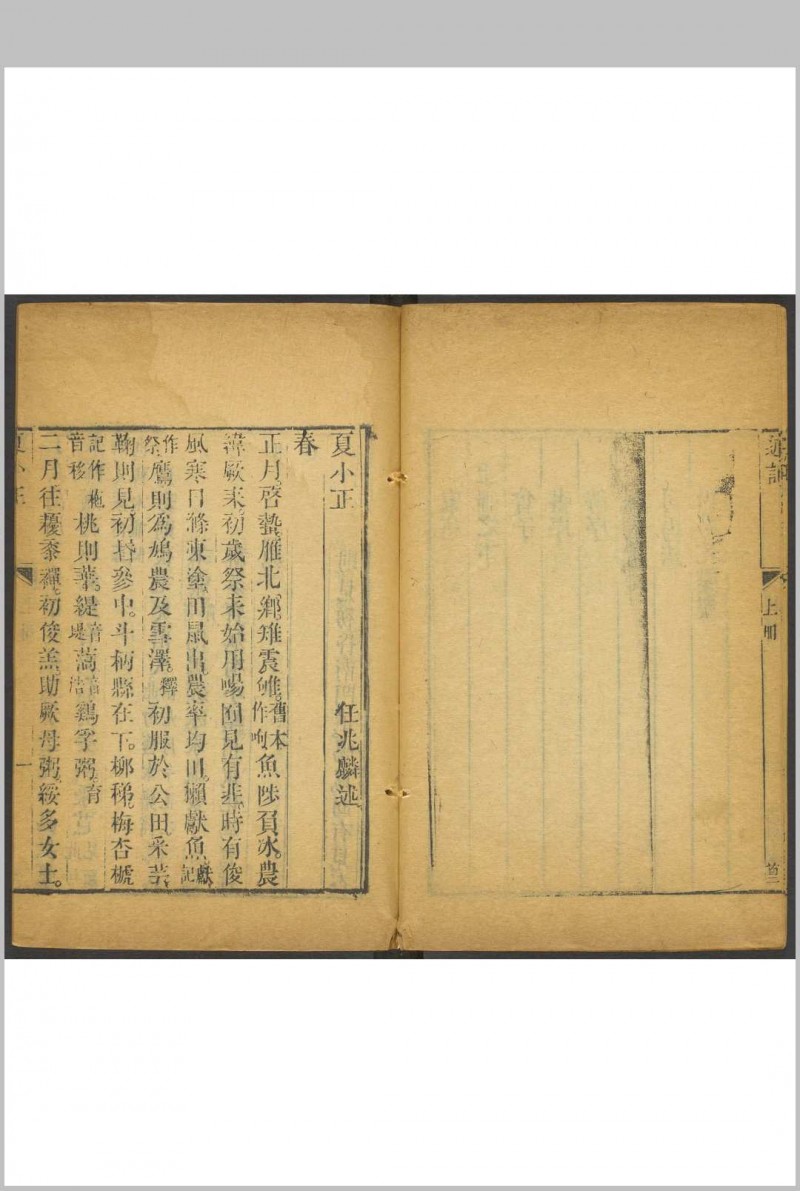 上冊
夏小正　任兆麟述
春
正月。啓蟄。雁北鄉。雉震雊。舊本作呴魚陟負冰。農
緯厥耒。初歲祭耒始用暢。囿見有韭。時有俊
風。寒日滌凍塗。田鼠出。農率均田。獺獻魚。獻記
作祭鷹則爲鳩。農及雪澤。釋初服於公田。采芸。
鞠則見。初昏參中。斗柄縣在下。柳稊。梅杏杝
記作杝音移桃則華。緹音堤縞音浩雞孚粥。育
二月。往耰黍禪。初俊羔。助厥母粥。綏多女士。
夏小正　一